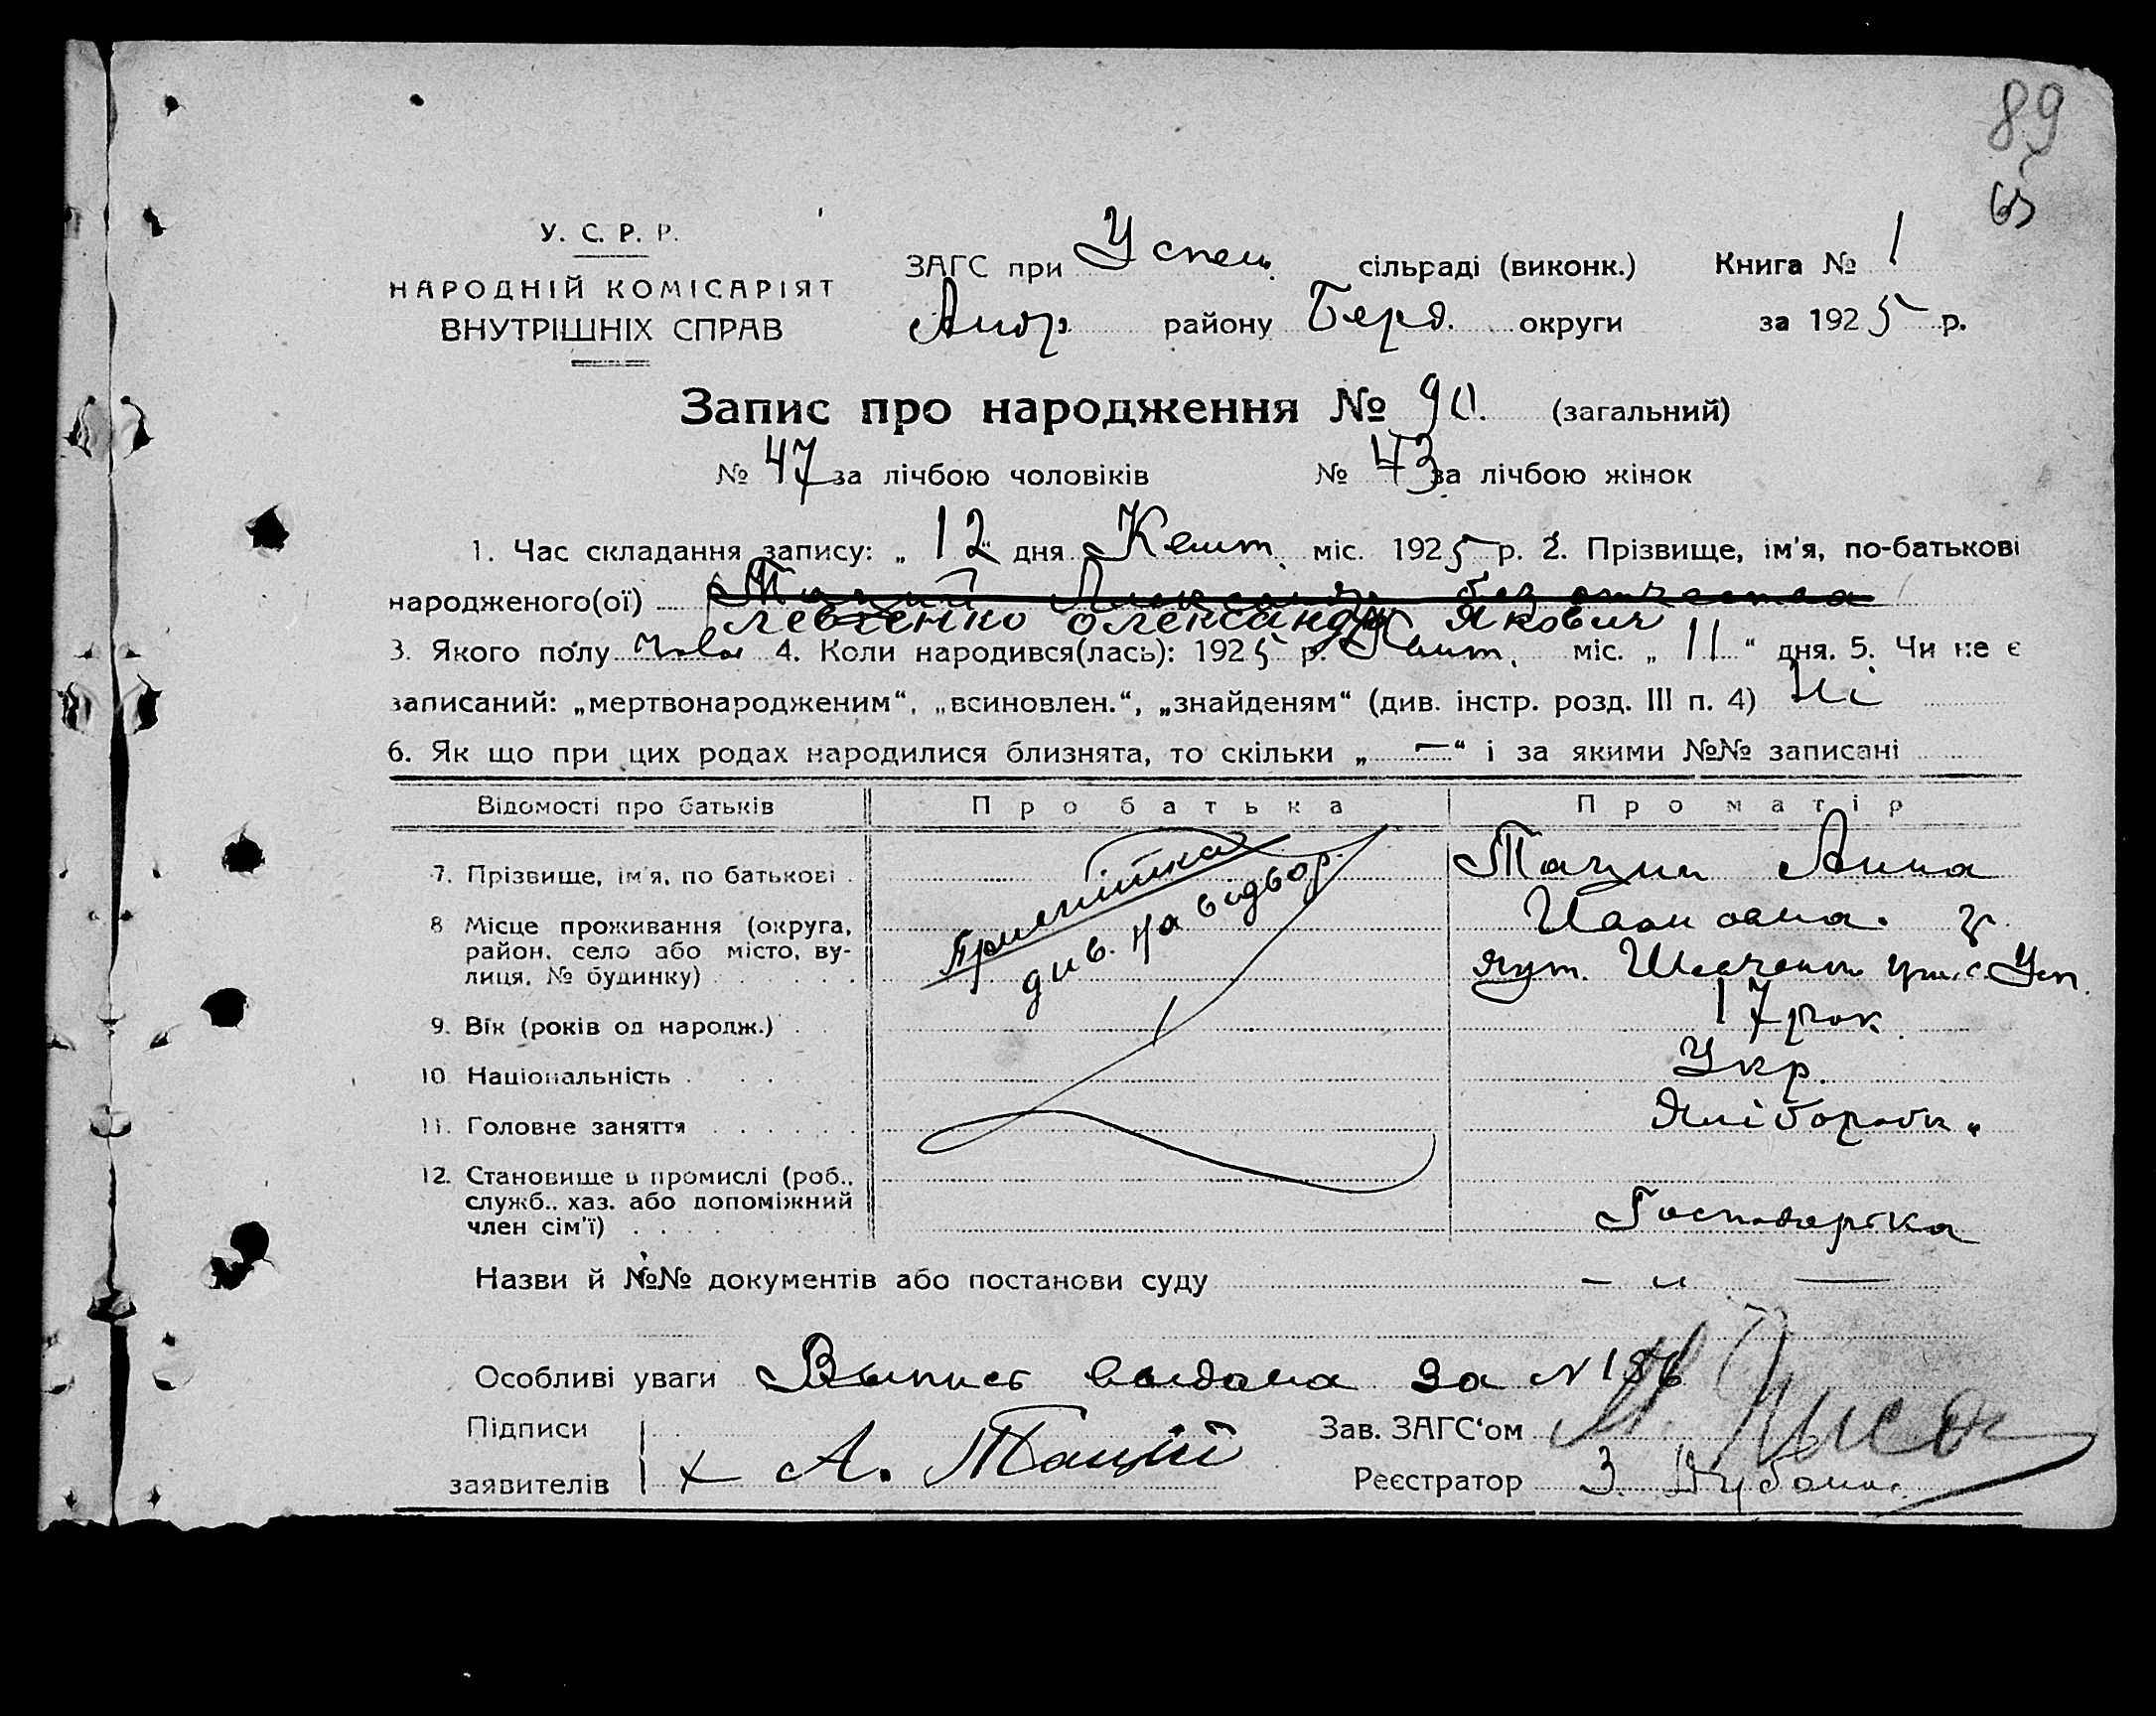 89
65
У. С. Р. Р.
НАРОДНІЙ КОМІСАРІЯТ
ВНУТРІШНІХ СПРАВ
ЗАГС при Успен. сільраді (виконк.) Книга № 1
Андр. району Берд. округи за 1925 р.
Запис про народження № 90. (загальний)
№ 47 за лічбою чоловіків № 43 за лічбою жінок
1. Час складання запису: „ 12 “ дня міс. 1925 р. 2. Прізвище, ім'я, по-батькові
народженого(ої) Таций Александр без отчества
Левченко Олександр Якович
3. Якого полу 4. Коли народився(лась): 1925 р. міс. „ 11 “ дня. 5. Чи не є
записаний: „мертвонародженим“, „всиновлен.“, „знайденям“ (див. інстр. розд. III п. 4) Ні
6. Як що при цих родах народилися близнята, то скільки „ — “ і за якими №№ записані
Відомості про батьків Про батька Про матір
7. Прізвище, ім'я, по батькові . Тации Анна
8 Місце проживання (округа, Ивановна.
район, село або місто, ву-
лиця, № будинку) . . . . . Уст.
примітка
див. на відвор.
9. Вік (років од народж.) . 17 рок.
10 Національність . . . . Укр.
11. Головне заняття . . . . . . Хліборобк.
12. Становище в промислі (роб.,
служб., хаз. або допоміжний
член сім'ї) . . . . Господарка
Назви й №№ документів або постанови суду — „ —
Особливі уваги Выпись выдана за N 186
Підписи
заявителів + А. Тацій
Зав. ЗАГС‘ом
Реєстратор З.